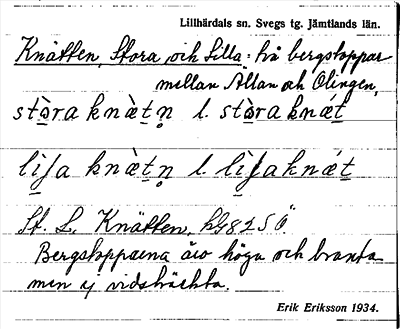 Lillhärdals sn. Svegs tg. Jämtlands län.
Knätten, Stora och Lilla: två bergstoppar
mellan Ållan och Olingen,
stɔ̀ra knæ̀tn̥ l. stɔ̀ra knǽt
li̇̀ʃa knæ̀tn̥ l. li̇̀ʃa knǽt
St. L. Knätten, hG825Ö
Bergstopparna äro höga och branta
men ej vidsträckta.
Erik Eriksson 1934.